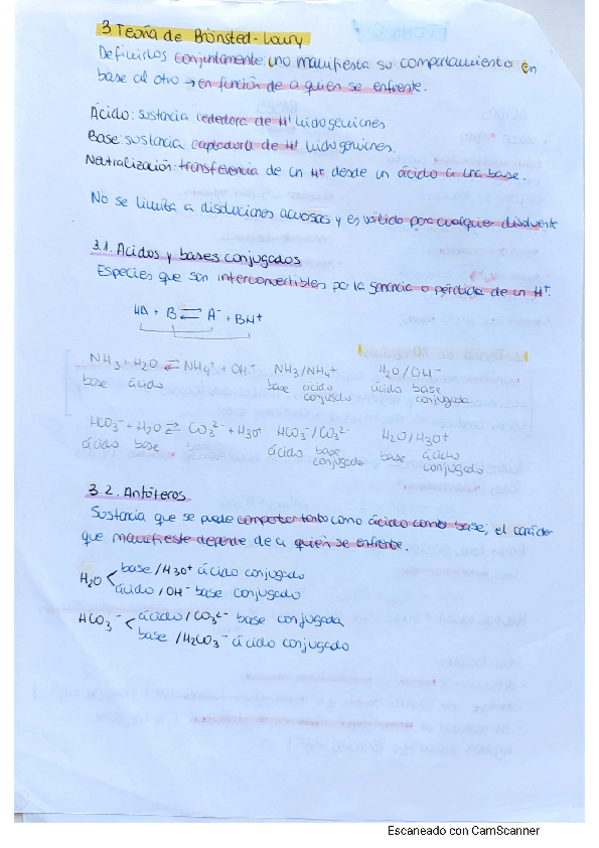 3 Teoría de Brönsted-Lowry
Definirlos conjuntamente, uno manifiesta su comportamiento en
base al otro → en función de a quien se enfrente.
Ácido: sustancia cededora de H⁺ hidrogeniones
Base: sustancia captadora de H⁺ hidrogeniones.
Neutralización: transferencia de un H⁺ desde un ácido a una base.
No se limita a disoluciones acuosas y es válido para cualquier disolvente
3.1. Ácidos y bases conjugados
Especies que son interconvertibles por la ganancia o pérdida de un H⁺.
HA + B ⇌ A⁻ + BH⁺
NH3 + H2O ⇌ NH4⁺ + OH⁻ NH3/NH4⁺ H2O/OH⁻
base ácido base ácido conjugado ácido base conjugada
HCO3⁻ + H2O ⇌ CO3²⁻ + H3O⁺ HCO3⁻/CO3²⁻ H2O/H3O⁺
ácido base ácido base conjugada base ácido conjugado
3.2. Anfóteros
Sustancia que se puede comportar tanto como ácido como base; el carácter
que manifieste depende de a quién se enfrente.
H2O < base/H3O⁺ ácido conjugado
ácido/OH⁻ base conjugado
HCO3⁻ < ácido/CO3²⁻ base conjugada
base/H2CO3⁻ ácido conjugado
Escaneado con CamScanner